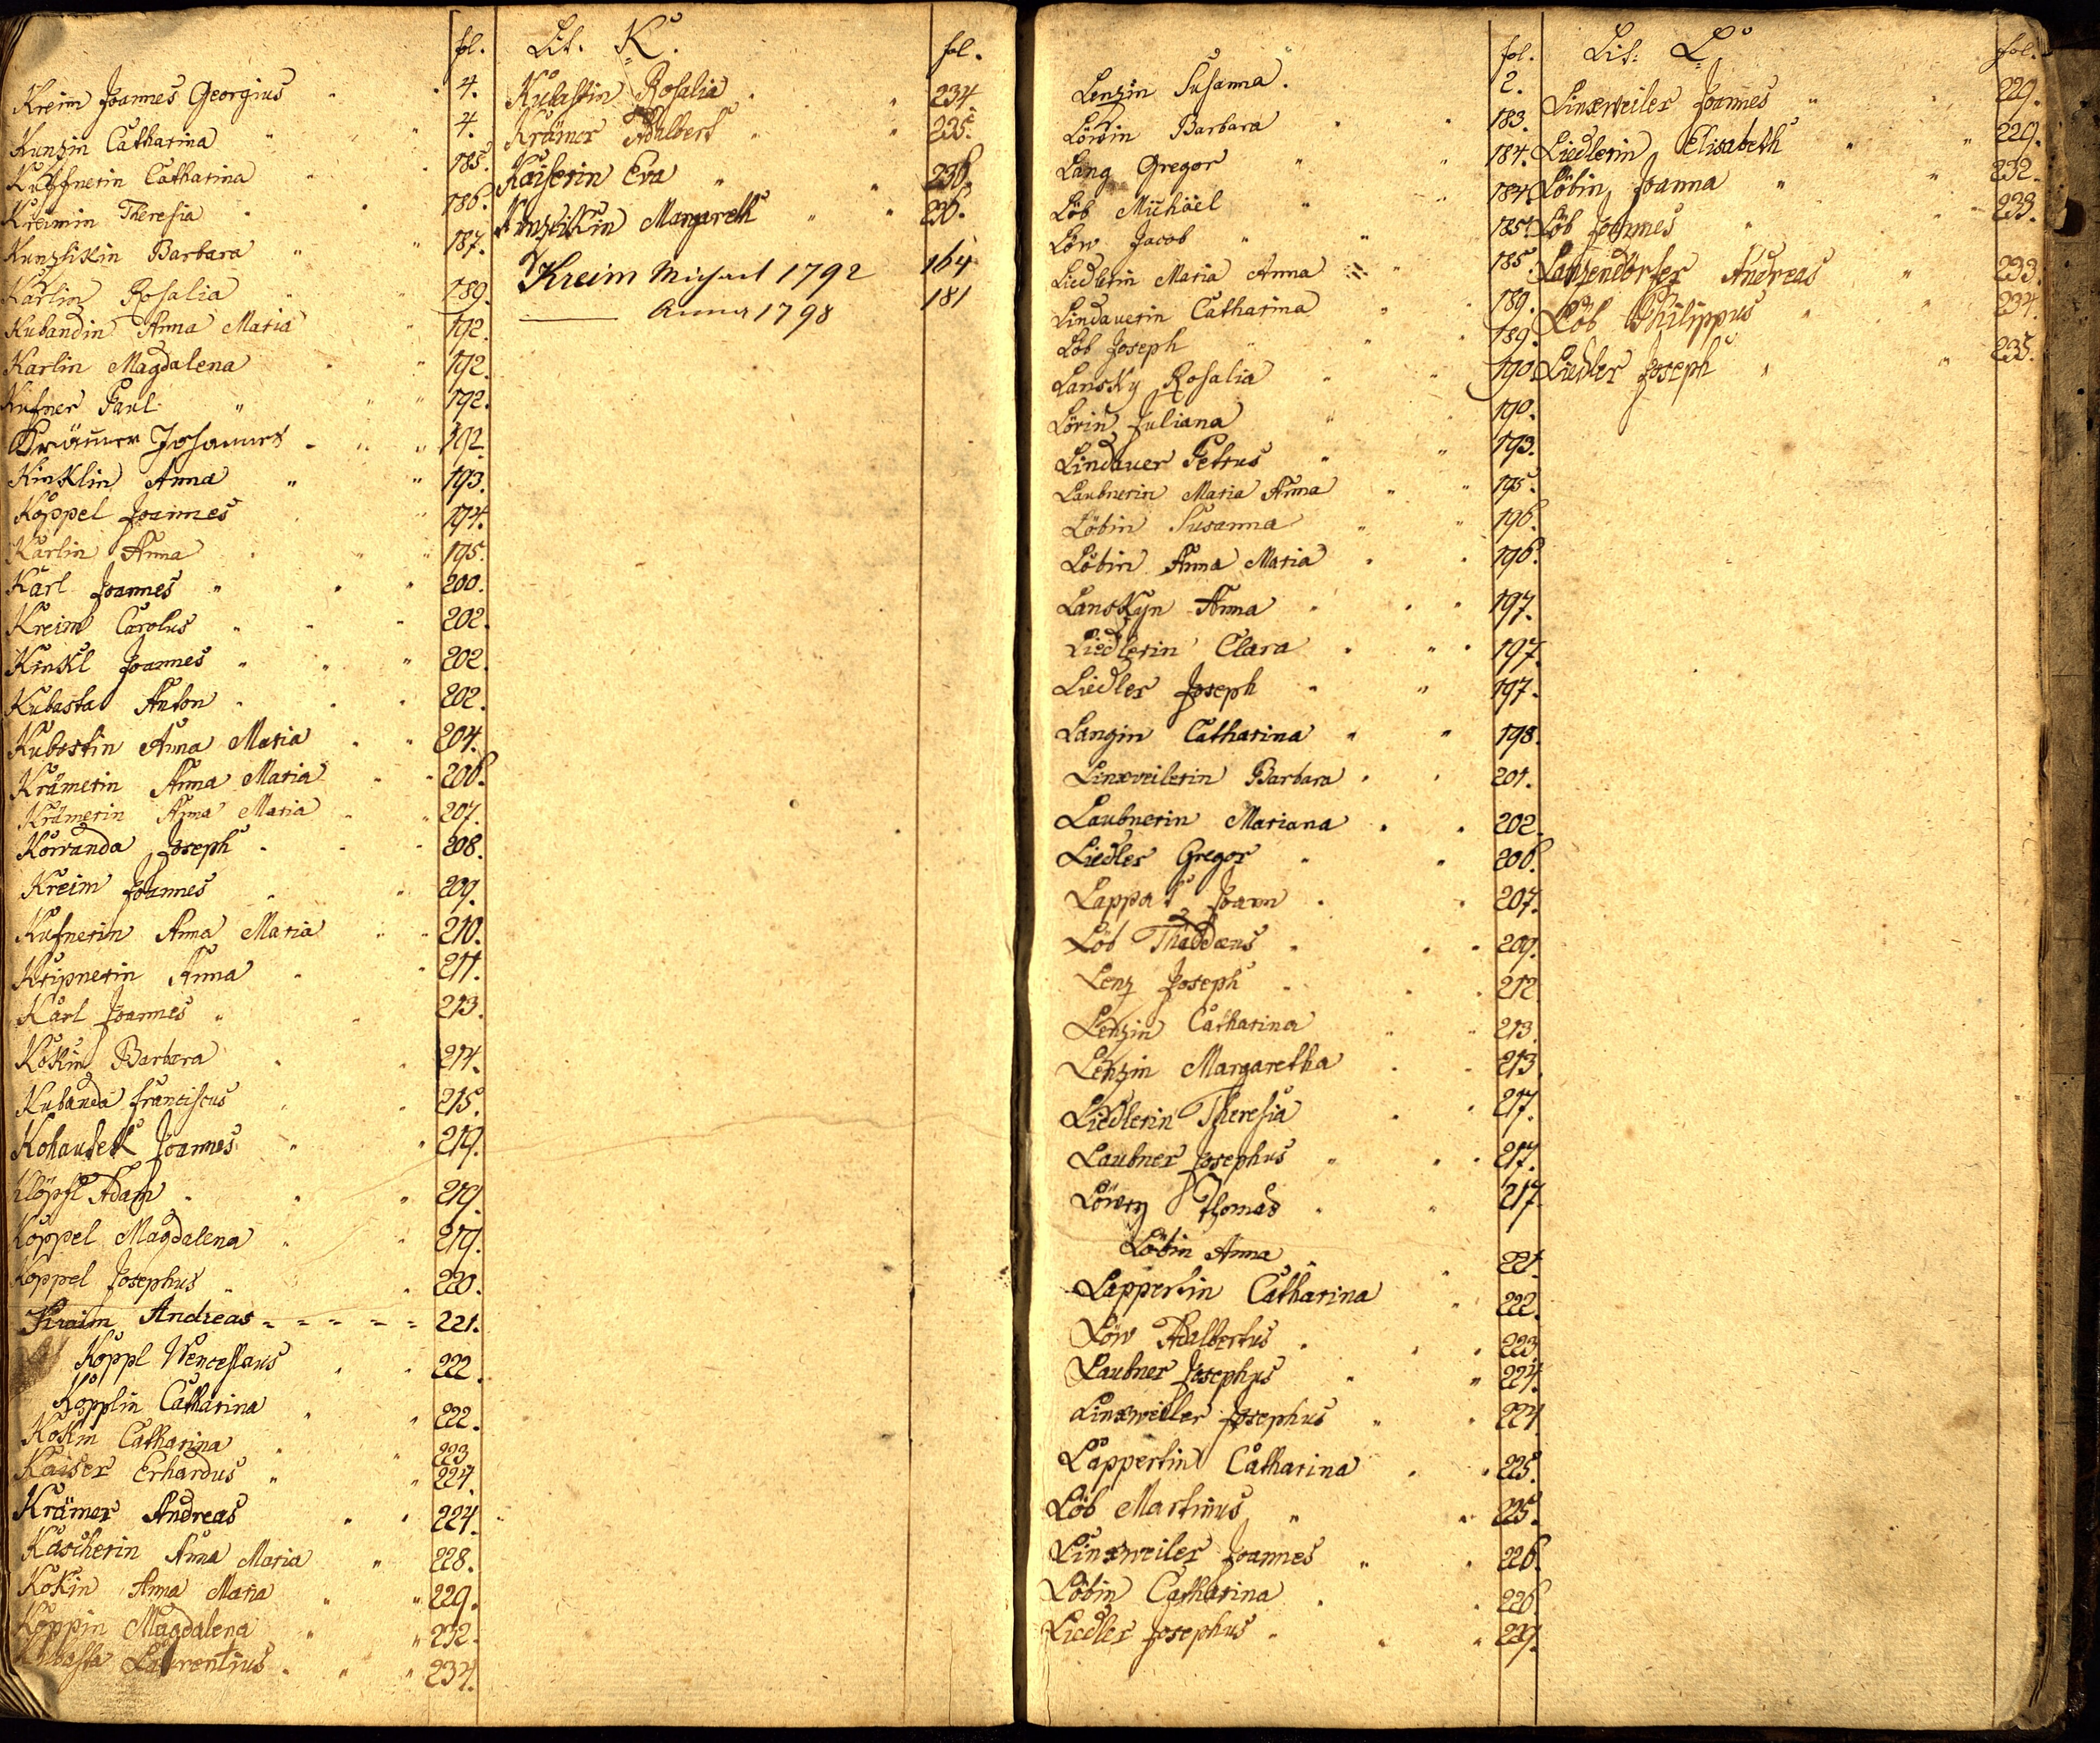 fol.
Kreim Joannes Georgius 4.
Kunzin Catharina 4.
Kuffnerin Catharina 185.
Kreimin Theresia 186.
Kunzlikin Barbara 187.
Karlin Rosalia 189.
Kubandin Anna Maria 192.
Karlin Magdalena 192.
Kufner Paul 192.
Krämer Johannes 192.
Kinklin Anna 193.
Koppel Joannes 194.
Karlin Anna 195.
Karl Joannes 200.
Kreim Carolus 202.
Kinkl Joannes 202.
Kubasta Anton 202.
Kubostin Anna Maria 204.
Krämerin Anna Maria 206.
Krämerin Anna Maria 207.
Kowanda Joseph 208.
Kreim Joannes 209.
Kufnerin Anna Maria 210.
Kripnerin Anna 211.
Karl Joannes 213.
Kokin Barbara 214.
Kubanda Franciscus 215.
Kohautek Joannes 219.
Klöpfl Adam 219.
Koppel Magdalena 219.
Koppel Josephus 220.
Kraim Andreas 221.
Koppl Wenceslaus 222.
Kopplin Catharina 222.
Kokin Catharina 223
Kaiser Erhardus 224.
Krämer Andreas 224.
Kascherin Anna Maria 228.
Kokin Anna Maria 229.
Köppin Magdalena 232.
Kubasta Laurentius 234.
Lit. K. fol.
Kubastin Rosalia 234
Krämer Adalbert 235.
Kaiserin Eva 236.
Kunzlikin Margareth
Kreim Michael 1792 164
Anna 1798 181
fol.
Lenzin Susanna. 2.
Löwin Barbara 183.
Lang Gregor 184.
Löb Michäel 184.
Löw Jacob 185.
Liedlerin Maria Anna 185.
Lindauerin Catharina 189.
Löb Joseph 189.
Lansky Rosalia 190.
Lörin Juliana 190.
Lindauer Petrus 193.
Laubnerin Maria Anna 195.
Löbin Susanna 196.
Löbin Anna Maria 196.
Lanskyn Anna 197.
Liedlerin Clara 197.
Liedler Joseph 197.
Langin Catharina 198.
Linxweilerin Barbara 201.
Laubnerin Mariana 202.
Liedler Gregor 206.
Lappat Joann 207.
Löb Thaddæus 209.
Lenz Joseph 212.
Lenzin Catharina 213.
Lenzin Margaretha 213
Liedlerin Theresia 217.
Laubner Josephus 217.
Löwy Thomas 217
Löbin Anna 221.
Lappertin Catharina 222.
Löw Adalbertus 223
Laubner Josephus 224.
Linxweiller Josephus 224
Lappertin Catharina 225.
Löb Martinus 225.
Linxweiler Joannes 226.
Löbin Catharina 226
Liedler Josephus 229.
Lit: L. fol.
Linxweiler Joannes 229.
Liedlerin Elisabeth 229.
Löbin Joanna 232.
Löb Joannes 233.
Lanzendorfer Andreas 233.
Löb Philippus 234.
Liedler Joseph 235.